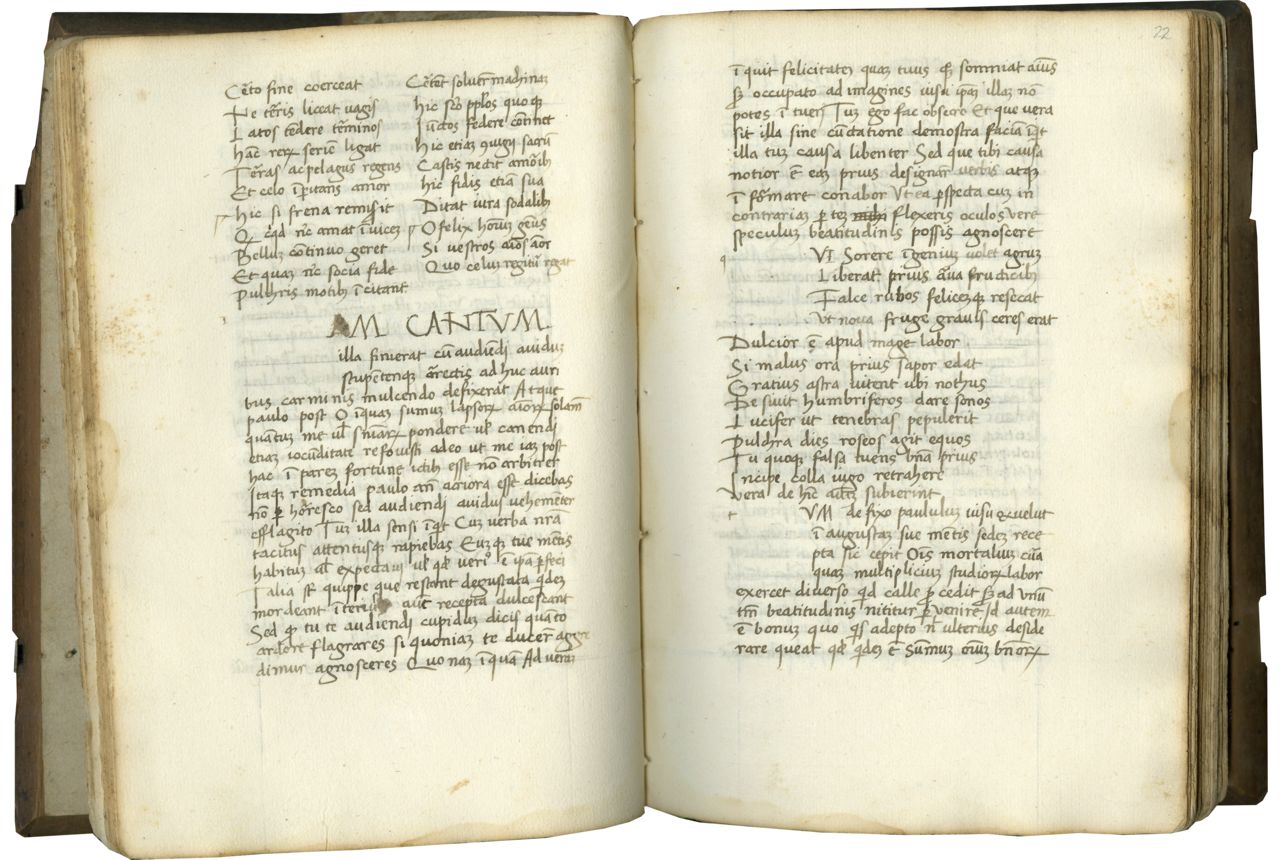 Cẽto fine coerceat
Ne tẽris liceat vagis
Latos tẽdere tẽminos
Hãc rerꝝ seriẽ ligat
Tẽras ac pelagus regens
Et celo ĩpitans amor
Hic si frena remisit
Qꝫ cqd nc̃ amat ĩuicẽ
Belluꝫ cõntinuo geret
Et quaꝫ nc̃ socia fide
Pulchris motib ĩcitant
Cẽtent soluer madhinaꝫ
hic sco pplos quoqꝫ
Iũctos federe cõntinet
Hic etiaꝫ ꝯiugii sacrũ
Castis nectit amoĩb
hic fidis etiã sua
Dictat iura sodalib
O felix hoĩuꝫ geñus
Si vestros aĩos aõr
Quo celuꝫ regitũ regat
AM CANTVM
illa finierat cũ audiendi auiduꝫ
stupẽtenqꝫ ãrectis ad huc auri
bus carminis mulcendo defixerat Atque
paulo post O ĩquaꝫ sumuꝫ lapsorꝝ aĩorꝝ solam̃
quantuꝫ me ul sñiarꝝ pondere ul canendi
etiaꝫ iocũditate refouisti adeo ut me iaꝫ post
hac ĩ pareꝫ fortune ictib esse nõ arbitrer
Itaqꝫ remedia paulo añ acriora esse dicebas
nõ ꝑ hõresco sed audiendi auidus vehemẽter
efflagito Tuꝫ illa sensi ĩqt Cuꝫ verba nrã
tacitus attentusqꝫ rapiebas Euꝫqꝫ tue mẽtis
habituꝫ ul expectaui ul qd veriꝰ ẽ ipã ꝑfeci
Talia sr̃ quippe que restant degustata qideꝫ
mordeant ĩteriꝰ aut̃ recepta dulcescant
Sed qꝫ tu te audiendi cupiduꝫ dicis quãto
ardore flagrares si quoniaꝫ te ducer aggre
dimur agnosceres Quo naꝫ ĩquã Ad veraꝫ
22
ĩquit felicitateꝫ quaꝫ tuus qꝫ somniat aĩus
Sꝫ occupato ad imagines visu ipãꝫ illaꝫ nõ
potes ĩ tueri Tuꝫ ego fac obsecro Et que vera
sit illa sine cũctatione demõstra faciã ĩqt
illa tuꝫ causa libenter Sed que tibi causa
notior ẽ eaꝫ prius designar verbis atqꝫ
ĩ fõrmare conabor Vt ea ꝑspecta cuꝫ in
contrariaꝫ ꝑ teꝫ flexeris oculos vere
speculuꝫ beatitudinis possis agnoscere
VI Serere ĩgeniuꝫ volet agruꝫ
Liberat prius arua fructicib
Falce rubos feliceꝫqꝫ resecat
Vt noua fruge grauis ceres erat
Dulcior ẽ apud mage labor
Si malus ora prius sapor edat
Gratius astra nitent ubi nothus
De siuit humbriferos dare sonos
Lucifer ut tenebras pepulerit
Pulchra dies roseos agit equos
Tu quoqꝫ falsa tuens bñã prius
Incipe colla iugo retrahere
Vera de hĩc ãĩũ subierint
VM de fixo paululuꝫ visu & velut
ĩ augustaꝫ sue mẽtis sedeꝫ rece
pta sic cepit Oĩs mortaliuꝫ cũa
quaꝫ multipliciuꝫ studiorꝝ labor
exercet diuerso qid calle ꝓ cedit Sꝫ ad vnũ
tm̃ beatitudinis nititur ꝑ venire Id autem
ẽ bonuꝫ quo qs adepto nl ulterius deside
rare queat qd qideꝫ ẽ Sum̃uꝫ oĩuꝫ bnorꝝ